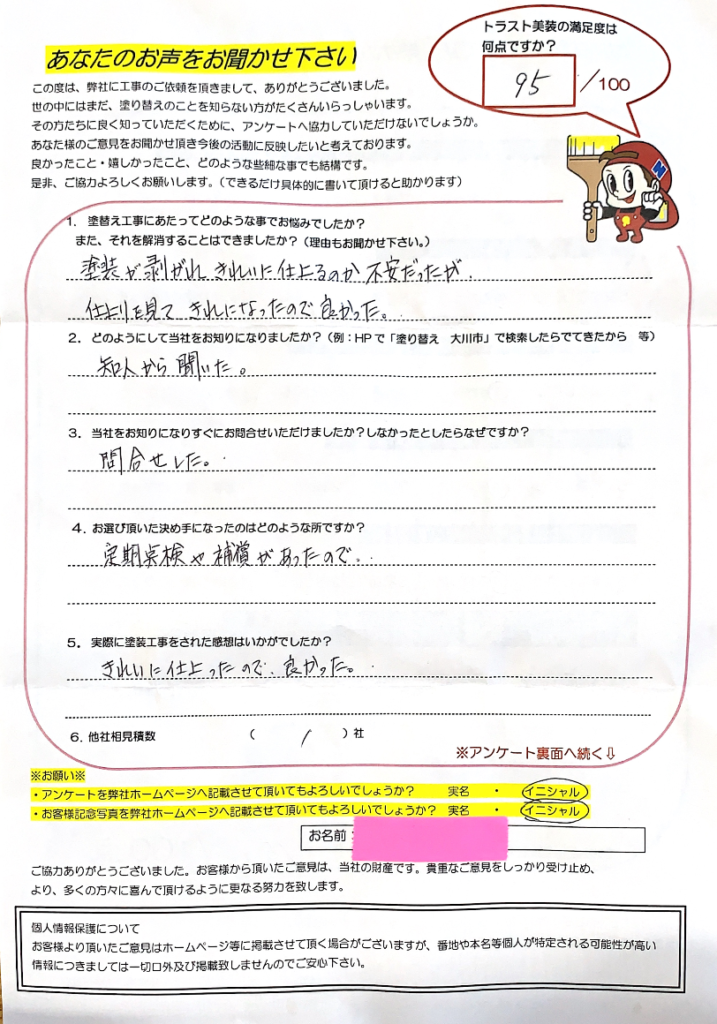 あなたのお声をお聞かせ下さい
トラスト美装の満足度は
何点ですか？
95／100
この度は、弊社に工事のご依頼を頂きまして、ありがとうございました。
世の中にはまだ、塗り替えのことを知らない方がたくさんいらっしゃいます。
その方たちに良く知っていただくために、アンケートへ協力していただけないでしょうか。
あなた様のご意見をお聞かせ頂き今後の活動に反映したいと考えております。
良かったこと・嬉しかったこと、どのような些細な事でも結構です。
是非、ご協力よろしくお願いします。（できるだけ具体的に書いて頂けると助かります）
1．塗替え工事にあたってどのような事でお悩みでしたか？
また、それを解消することはできましたか？（理由もお聞かせ下さい。）
塗装が剥がれ、きれいに仕上るのか 不安だったが、
仕上りを見て きれになったので良かった。
2．どのようにして当社をお知りになりましたか？（例：HPで「塗り替え 大川市」で検索したらでてきたから 等）
知人から聞いた。
3．当社をお知りになりすぐにお問合せいただけましたか？しなかったとしたらなぜですか？
問合せした。
4．お選び頂いた決め手になったのはどのような所ですか？
定期点検や補償があったので、
5．実際に塗装工事をされた感想はいかがでしたか？
きれいに仕上ったので、良かった。
6．他社相見積数 （ / ）社
※アンケート裏面へ続く⇩
※お願い※
・アンケートを弊社ホームページへ記載させて頂いてもよろしいでしょうか？ 実名 ・ イニシャル
・お客様記念写真を弊社ホームページへ記載させて頂いてもよろしいでしょうか？ 実名 ・ イニシャル
お名前：
ご協力ありがとうございました。お客様から頂いたご意見は、当社の財産です。貴重なご意見をしっかり受け止め、
より、多くの方々に喜んで頂けるように更なる努力を致します。
個人情報保護について
お客様より頂いたご意見はホームページ等に掲載させて頂く場合がございますが、番地や本名等個人が特定される可能性が高い
情報につきましては一切口外及び掲載致しませんのでご安心下さい。